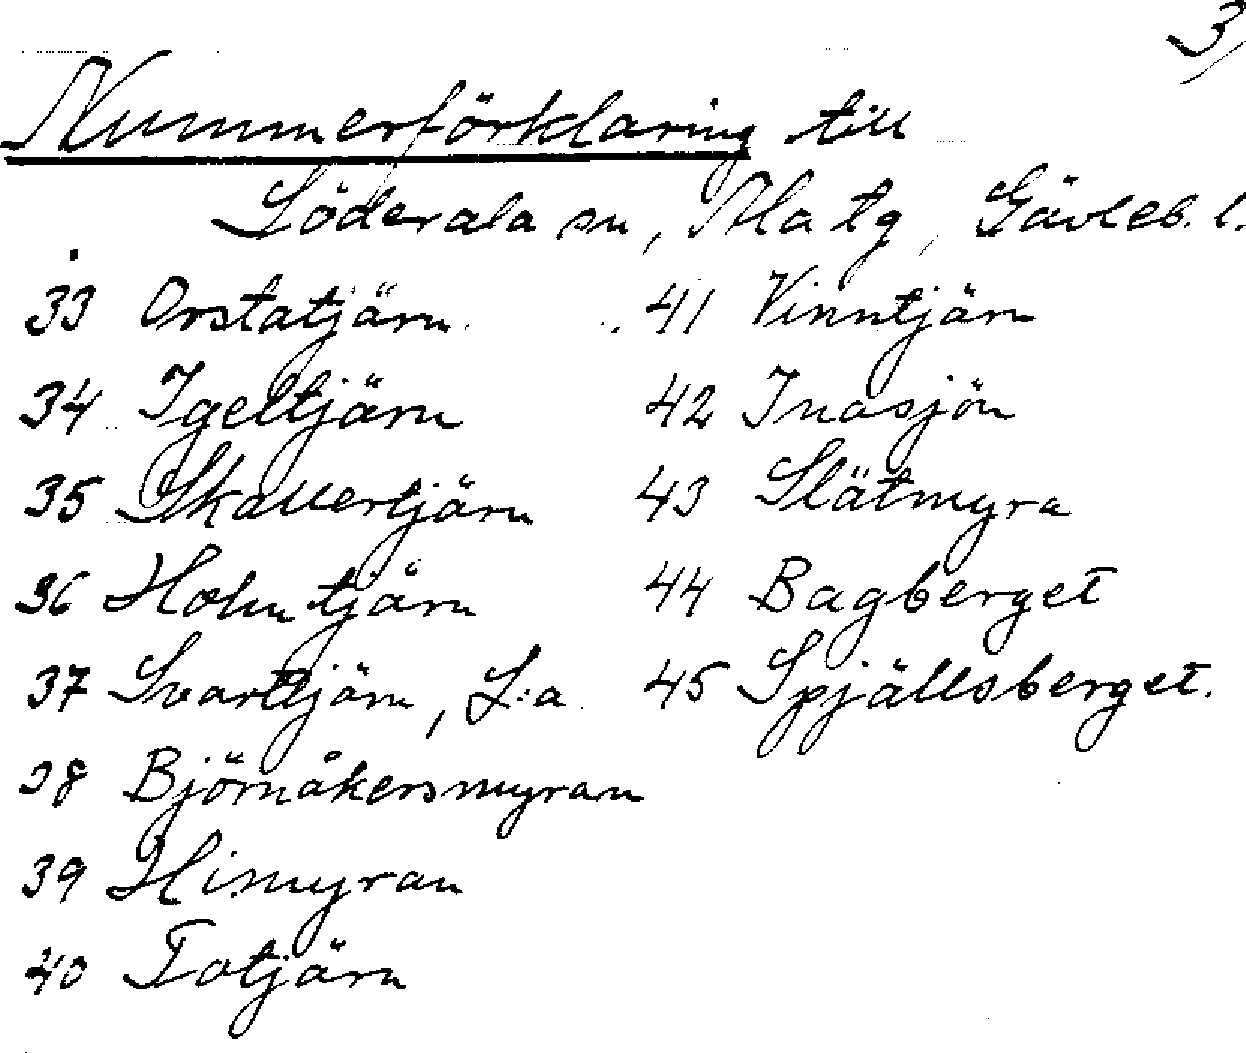 3,
Nummerförklaring till
Söderala sn, Ala tg, Gävleb. l.
33 Orstatjärn
34 Igeltjärn
35 Skallertjärn
36 Holmtjärn
37 Svarttjärn, L:a
38 Björnåkersmyran
39 Himyran
40 Totjärn
41 Vinntjärn
42 Inasjön
43 Slätmyra
44 Bagberget
45 Spjällsberget.